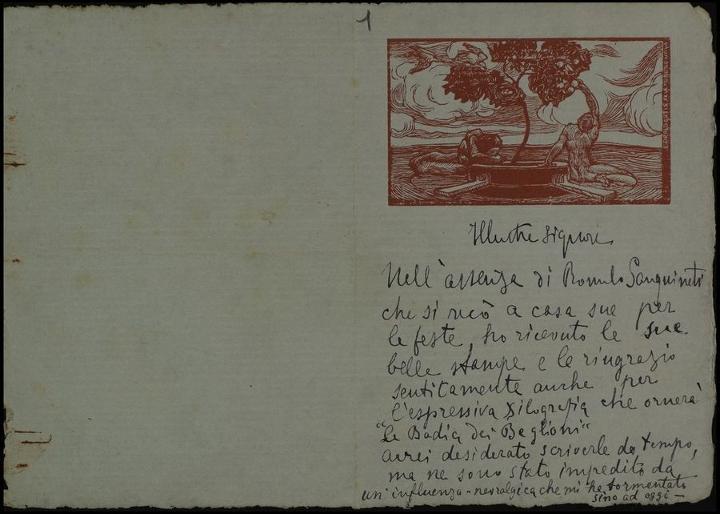 1
Illustre Signore
Nell'assenza di Romulo Sanguineti
che si recò a casa sue per
le feste, ho ricevuto le sue
belle stampe e le ringrazio
sentitamente anche per
l'espressiva xilografia che ornerà
"la Badia dei Baglioni"
avrei desiderato scriverle da tempo,
ma ne sono stato impedito da
un'influenza-nevralgica che mi ha tormentato
sino ad oggi —